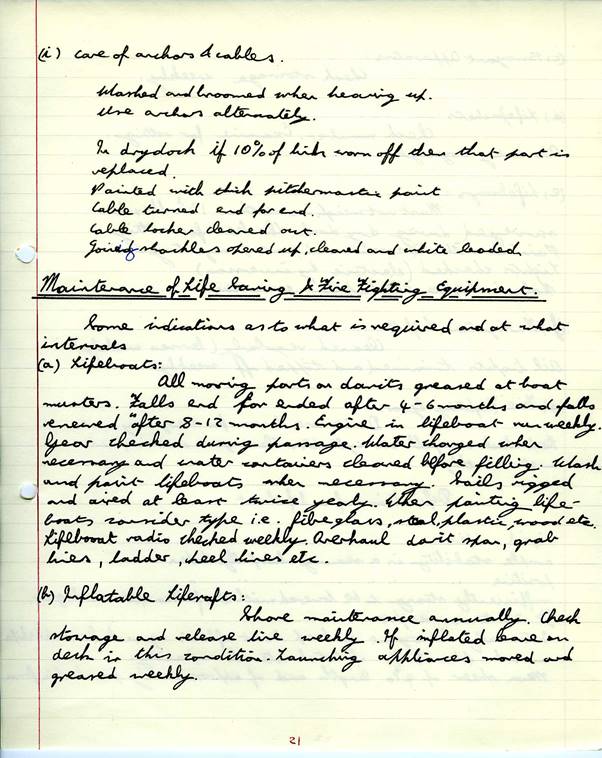 (i) care of anchors & cables.
Washed and broomed when heaving up.
Use anchors alternately.
In drydock if 10% of links worn off then that part is
replaced.
Painted with thick pitchmastic paint
Cable turned end for end.
Cable locker cleared out.
Joining shackles opened up, cleaned and white leaded
Maintenance of Life Saving & Fire Fighting Equipment.
Some indications as to what is required and at what
intervals
(a) Lifeboats:
All moving parts on davits greased at boat
musters. Falls end for ended after 4-6 months and falls
renewed after 8-12 months. Engine in lifeboat run weekly.
Gear checked during passage. Water changed when
necessary and water containers cleaned before filling. Wash
and paint lifeboats when necessary. Sails rigged
and aired at least twice yearly. When painting life-
boats consider type i.e. fibreglass, steal, plastic, wood etc.
Lifeboat radio checked weekly. Overhaul davit span, grab
lines, ladder, keel lines etc.
(b) Inflatable Liferafts:
Shore maintenance annually. Check
stowage and release line weekly. If inflated leave on
deck in this condition. Launching appliances moved and
greased weekly.
21